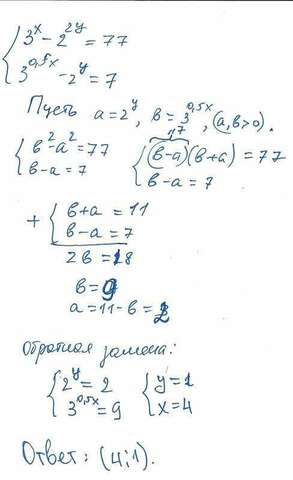 { 3^x - 2^{2y} = 77
{ 3^{0,5x} - 2^y = 7
Пусть a = 2^y, b = 3^{0,5x}, (a,b>0).
{ b² - a² = 77 { (b-a)(b+a) = 77
{ b - a = 7 { b - a = 7
+ { b + a = 11
{ b - a = 7
2b = 18
b = 9
a = 11 - b = 2
Обратная замена:
{ 2^y = 2 { y = 1
{ 3^{0,5x} = 9 { x = 4
Ответ: (4;1).